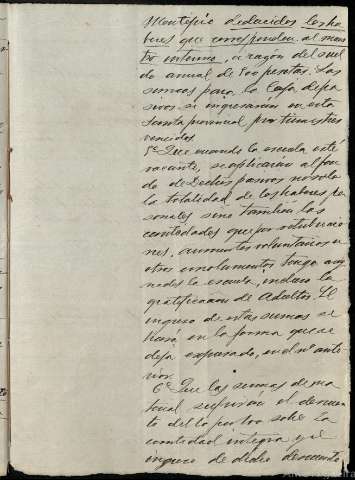 Montepío deducidos los ha
beres que corresponden al maes
tro interino, a razón del suel
do anual de 500 pesetas. Las
sumas para la Caja de pa
sivos se ingresarán en esta
Junta provincial por trimestres
vencidos.
5º Que cuando la escuela esté
vacante, se aplicarán al fon
do de Dchos pasivos no solo
la totalidad de los haberes pe
sonales sino también las
cantidades que por retribucio
nes, aumentos voluntarios u
otros emolumentos tenga asig
nados la escuela, incluso la
gratificación de Adultos. El
ingreso de estas sumas se
hará en la forma que se
deja expresado, en el nº ante
rior.
6º Que las sumas de ma
terial sufrirán el descuen
to del por sobre la
cantidad íntegra y el
ingreso de dicho descuento